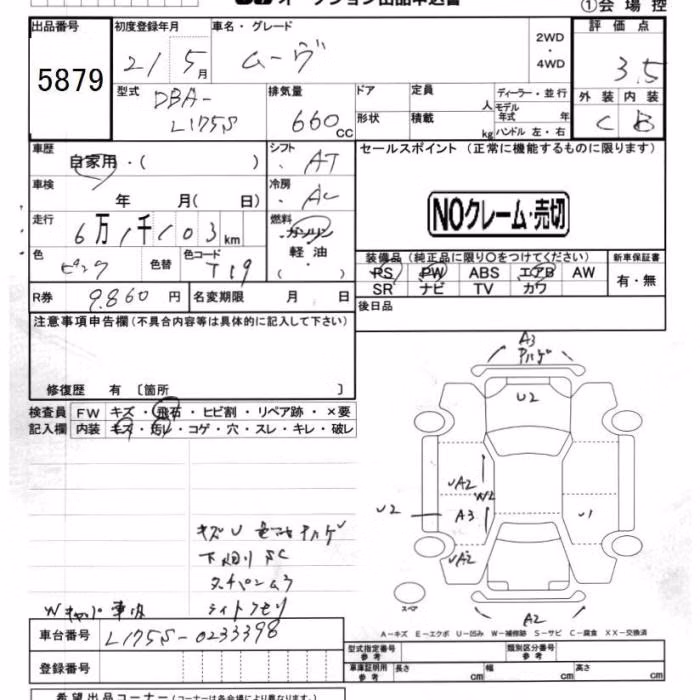 オークション出品申込書
①会場控
出品番号
初度登録年月
車名・グレード
2WD
・
4WD
評価点
5879
21 5月
ムーヴ
3.5
型式
DBA-
L175S
排気量
660 CC
ドア
形状
定員
人
積載
kg
ディーラー・並行
モデル
年式 年
ハンドル 左・右
外装
内装
C
B
車歴
自家用・( )
シフト
AT
セールスポイント(正常に機能するものに限ります)
車検
年 月( 日)
冷房
AC
NOクレーム・売切
走行
6万1千103km
燃料
ガソリン
軽油
( ・ )
色
ピンク
色替
色コード
T19
装備品(純正品に限り○をつけてください)
新車保証書
PS PW ABS エアB AW
SR ナビ TV カワ
有・無
R券
9,860円
名変期限 月 日
後日品
注意事項申告欄(不具合内容等は具体的に記入して下さい)
修復歴 有〔箇所 〕
検査員
記入欄
FW キズ・飛石・ヒビ割・リペア跡・×要
内装 キズ・汚レ・コゲ・穴・スレ・キレ・破レ
A3
ハゲ
U2
UA2
W2
A3
U2
U1
UA2
A2
スペア
キズU
下廻りSC
ライトクモリ
Wキャップ車内
A-キズ E-エクボ U-凹み W-補修跡 S-サビ C-腐食 XX-交換済
車台番号
L175S-0233398
登録番号
型式指定番号
参考
類別区分番号
参考
車庫証明用
参考
長さ cm
幅 cm
高さ cm
希望出品コーナー(コーナーは各会場により異なります)